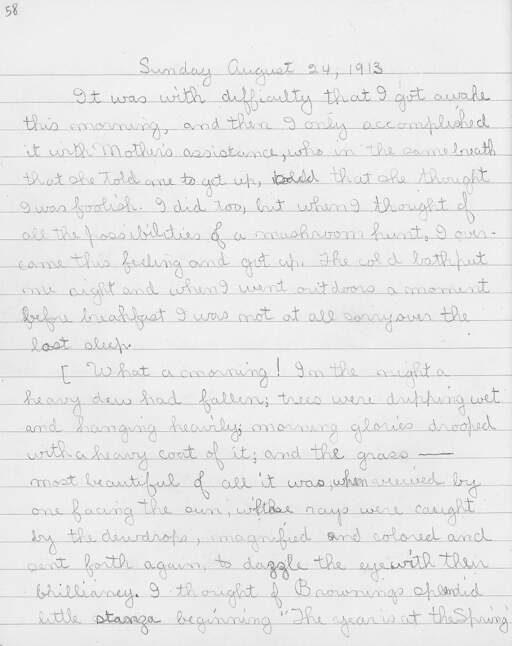 58
Sunday August 24, 1913
It was with difficulty that I got awake
this morning, and then I only accomplished
it with Mother's assistance, who in the same breath
that she told me to get up, added that she thought
I was foolish. I did too, but when I thought of
all the possibilities of a mushroom hunt, I over-
came this feeling and got up. The cold bath put
me right and when I went outdoors a moment
before breakfast I was not at all sorry over the
lost sleep.
[ What a morning! In the night a
heavy dew had fallen; trees were dripping wet
and hanging heavily; morning glories drooped
with a heavy coat of it; and the grass —
most beautiful of all it was, when viewed by
one facing the sun, whose rays were caught
by the dewdrops, magnified and colored and
sent forth again, to dazzle the eye with their
brilliancy. I thought of Brownings splendid
little stanza beginning "The year is at the Spring